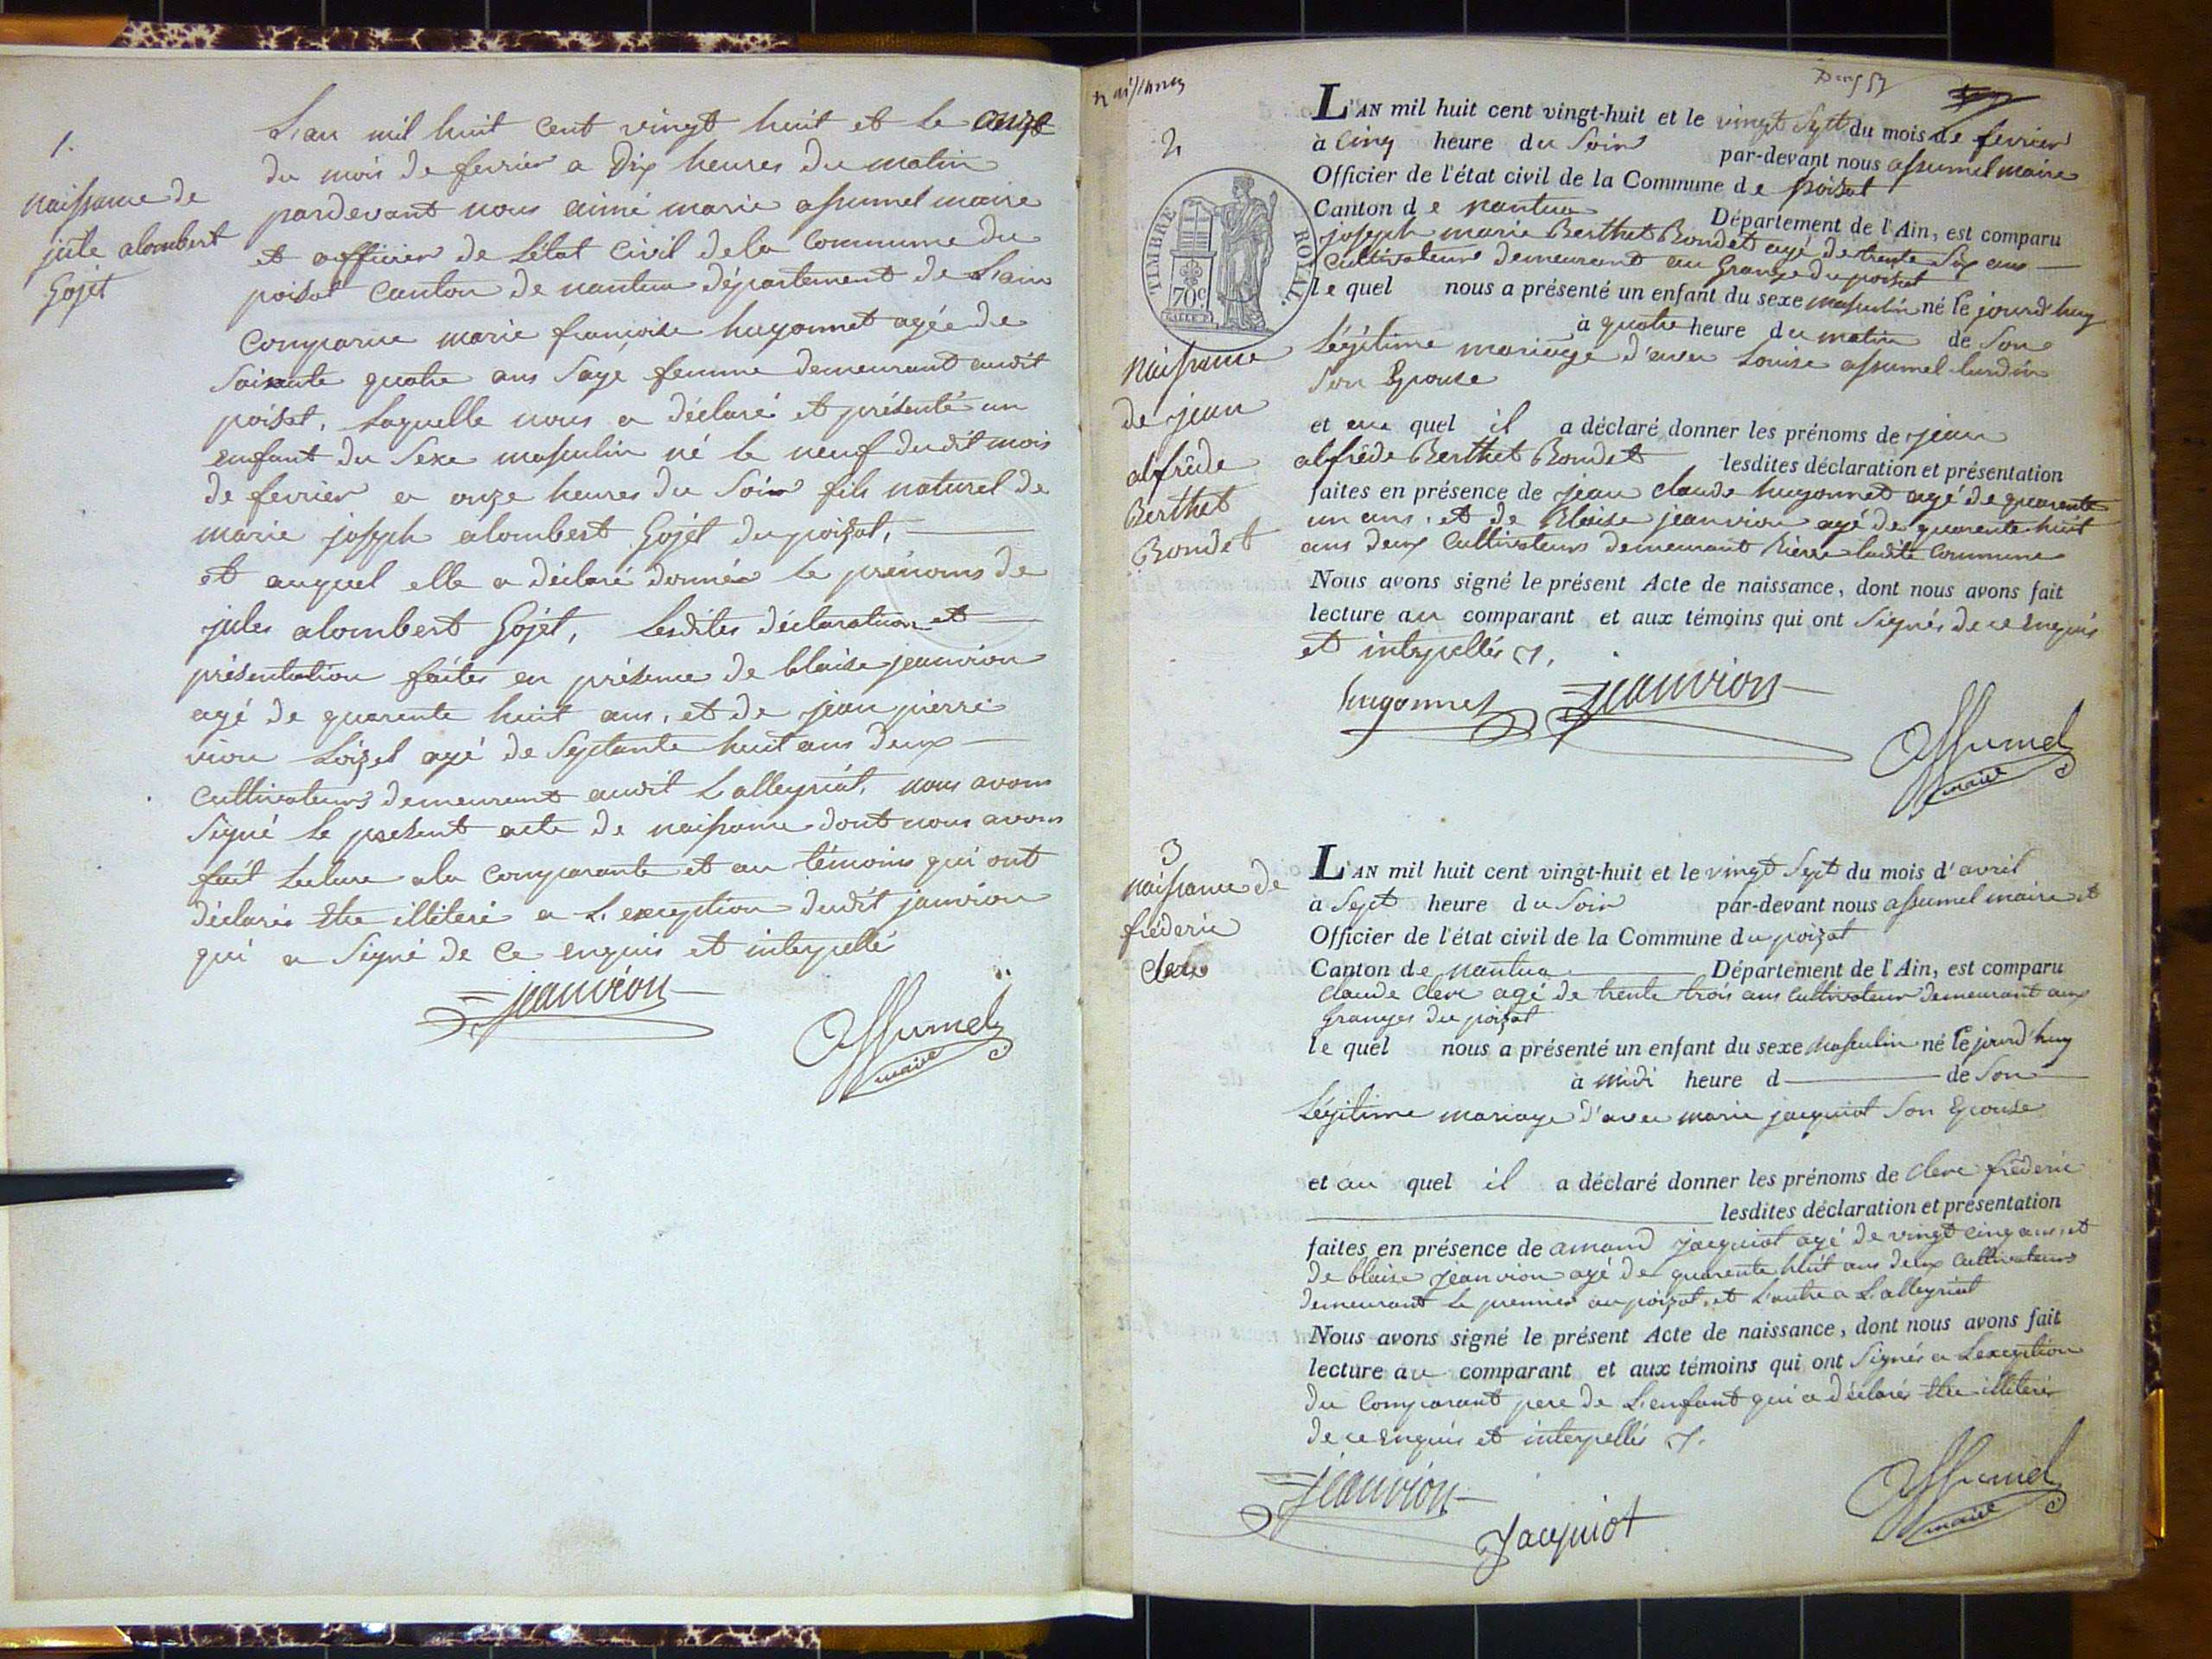 1.
naissance de
jule alombert
Gojet
L'an mil huit cent vingt huit et le onze
du mois de fevrier a Dix heures du matin
pardevant nous aimé marie assumel maire
et officier de L'état Civil dela Commune du
poisat Canton de nantua département de L'ain
Comparue marie francoise hugonnet agée de
Soixante quatre ans Sage femme demeurant audit
poisat, Laquelle nous a déclaré et présenté un
enfant du Sexe masculin né le neuf dudit mois
de fevrier a onze heures du Soir fils naturel de
marie joseph alombert Gojet du poizat,
et auquel elle a déclaré donner le prénoms de
jules alombert Gojet, Lesdites déclaration et
présentation faites en présence de blaise jeanvion
agé de quarente huit ans, et de jean pierre
vion Loizet agé de Septante huit ans deux
Cultivateurs demeurant audit Lalleyriat, nous avons
Signé le present acte de naissance dont nous avons
fait Lecture ala Comparante et au témoins qui ont
déclarés être illiteré a L'exception dudit janvion
qui a Signé de Ce enquis et interpellé
jeanvion
Assumel
maire
naissances
2
TIMBRE ROYAL.
70c
naissance
de jean
alfrêde
Berthet
Bondet
L'AN mil huit cent vingt-huit et le vingt Sept du mois de fevrier
à Cinq heure du Soir par-devant nous assumel maire
Officier de l'état civil de la Commune de poizat
Canton de nantua Département de l'Ain, est comparu
joseph marie Berthet Bondet agé de trente Six ans
Cultivateur demeurant au Grange du poizat
le quel nous a présenté un enfant du sexe masculin né le jourd'huy
à quatre heure du matin de Son
Légitime mariage d'avec Louise assumel lurdin
Son Epouse
et au quel il a déclaré donner les prénoms de jean
alfrêde Berthet Bondet lesdites déclaration et présentation
faites en présence de jean claude hugonnet agé de quarente
un ans, et de Blaise jeanvion agé de quarente huit
ans deux Cultivateurs demeurant Rière ladite Commune
Nous avons signé le présent Acte de naissance, dont nous avons fait
lecture au comparant et aux témoins qui ont Signés de ce Enquis
et interpellés
hugonnet jeanvion
Assumel
maire
3
naissance de
fréderic
Clerc
L'AN mil huit cent vingt-huit et le vingt Sept du mois d'avril
à Sept heure du Soir par-devant nous assumel maire et
Officier de l'état civil de la Commune du poizat
Canton de nantua Département de l'Ain, est comparu
claude clerc agé de trente trois ans Cultivateur demeurant aux
Granges du poizat
le quel nous a présenté un enfant du sexe masculin né le jourd'huy
à midi heure d de Son
Légitime mariage d'avec marie jacquiot Son Epouse
et au quel il a déclaré donner les prénoms de clerc fréderic
lesdites déclaration et présentation
faites en présence de amand jacquiot agé de vingt cinq ans, et
de blaise jeanvion agé de quarente huit ans deux Cultivateurs
demeurant le premier au poizat, et L'autre a Lalleyriat
Nous avons signé le présent Acte de naissance, dont nous avons fait
lecture au comparant et aux témoins qui ont Signés a Lexception
du Comparant pere de L'enfant qui a déclaré être illiteré
de ce enquis et interpellés
jeanvion
Jacquiot
Assumel
maire